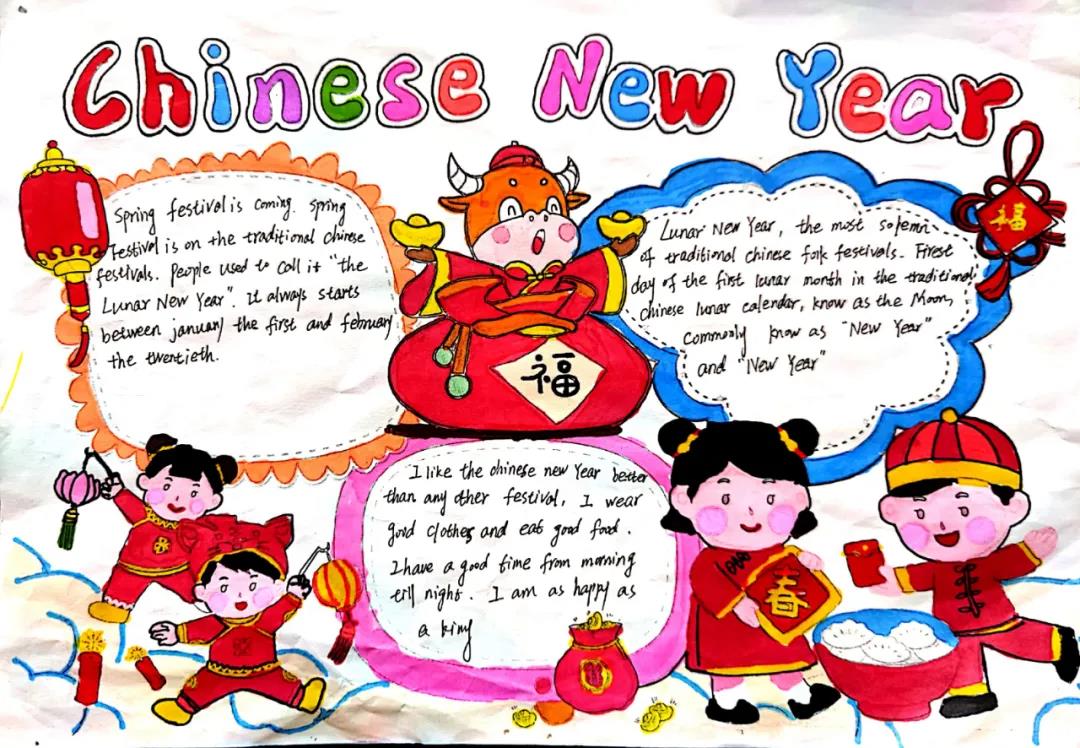 Chinese New Year
Spring festival is coming. Spring
Festival is on the traditional chinese
festivals. People used to call it "the
Lunar New Year". It always starts
between january the first and february
the twentieth.
福
福
Lunar New Year, the most solemn
of traditional chinese folk festivals. Firest
day of the first lunar month in the traditional
chinese lunar calendar, know as the Moon,
commonly know as "New Year"
and "New Year"
I like the chinese new Year better
than any other festival, I wear
good clothes and eat good food.
I have a good time from morning
till night. I am as happy as
a king
春